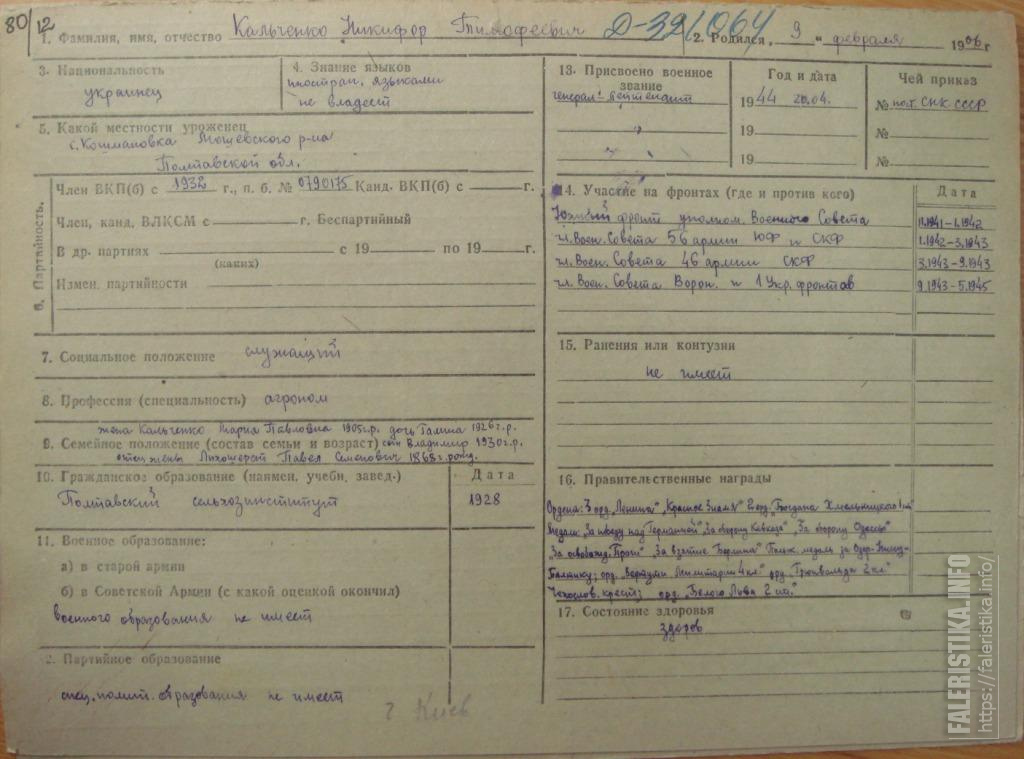 80/12
1. Фамилия, имя, отчество Кальченко Никифор Тимофеевич Д-321064 2. Родился „ 9 " февраля 1906 г
3. Национальность
украинец
4. Знание языков
иностран. языками
не владеет
5. Какой местности уроженец
с. Кошмановка Мошевского р-на
Полтавской обл.
6. Партийность.
Член ВКП(б) с 1932 г., п. б. № 0790175 Канд. ВКП(б) с г.
Член, канд. ВЛКСМ с г. Беспартийный
В др. партиях с 19 по 19 г.
(каких)
Измен. партийности
7. Социальное положение служащий
8. Профессия (специальность) агроном
жена Кальченко Мария Павловна 1905г.р. дочь Галина 1926г.р.
9. Семейное положение (состав семьи и возраст) сын Владимир 1930г.р.
отец жены Лихошерст Павел Семенович 1868г. рожд.
10. Гражданское образование (наимен. учебн. завед.) Дата
Полтавский сельхозинститут 1928
11. Военное образование:
а) в старой армии
б) в Советской Армии (с какой оценкой окончил)
военного образования не имеет
2. Партийное образование
спец. полит. образования не имеет
г Киев
13. Присвоено военное звание
Год и дата
Чей приказ
генерал-лейтенант 1944 20.04. № пост СНК СССР
19 №
19 №
14. Участие на фронтах (где и против кого) Дата
Южный фронт уполном. Военного Совета 11.1941-1.1942
чл. Воен. Совета 56 армии ЮФ и СКФ 1.1942-3.1943
чл. Воен. Совета 46 армии СКФ 3.1943-9.1943
чл. Воен. Совета Ворон. и 1 Укр. фронтов 9.1943-5.1945
15. Ранения или контузии
не имеет
16. Правительственные награды
Ордена: 3 орд. „Ленина", „Красное Знамя" 2 орд. „Богдана Хмельницкого 1 ст"
Медали: „За победу над Германией", „За оборону Кавказа", „За оборону Одессы"
„За освобожд. Праги" „За взятие Берлина" Польск. медаль за Одер-Нисцу-
Балтику; орд. „Виртути Милитари 4 кл." орд. „Грюнвальда 2 кл."
Чехослов. крест; орд. „Белого Льва 2 ст."
17. Состояние здоровья
здоров
FALERISTIKA.INFO
https://faleristika.info/